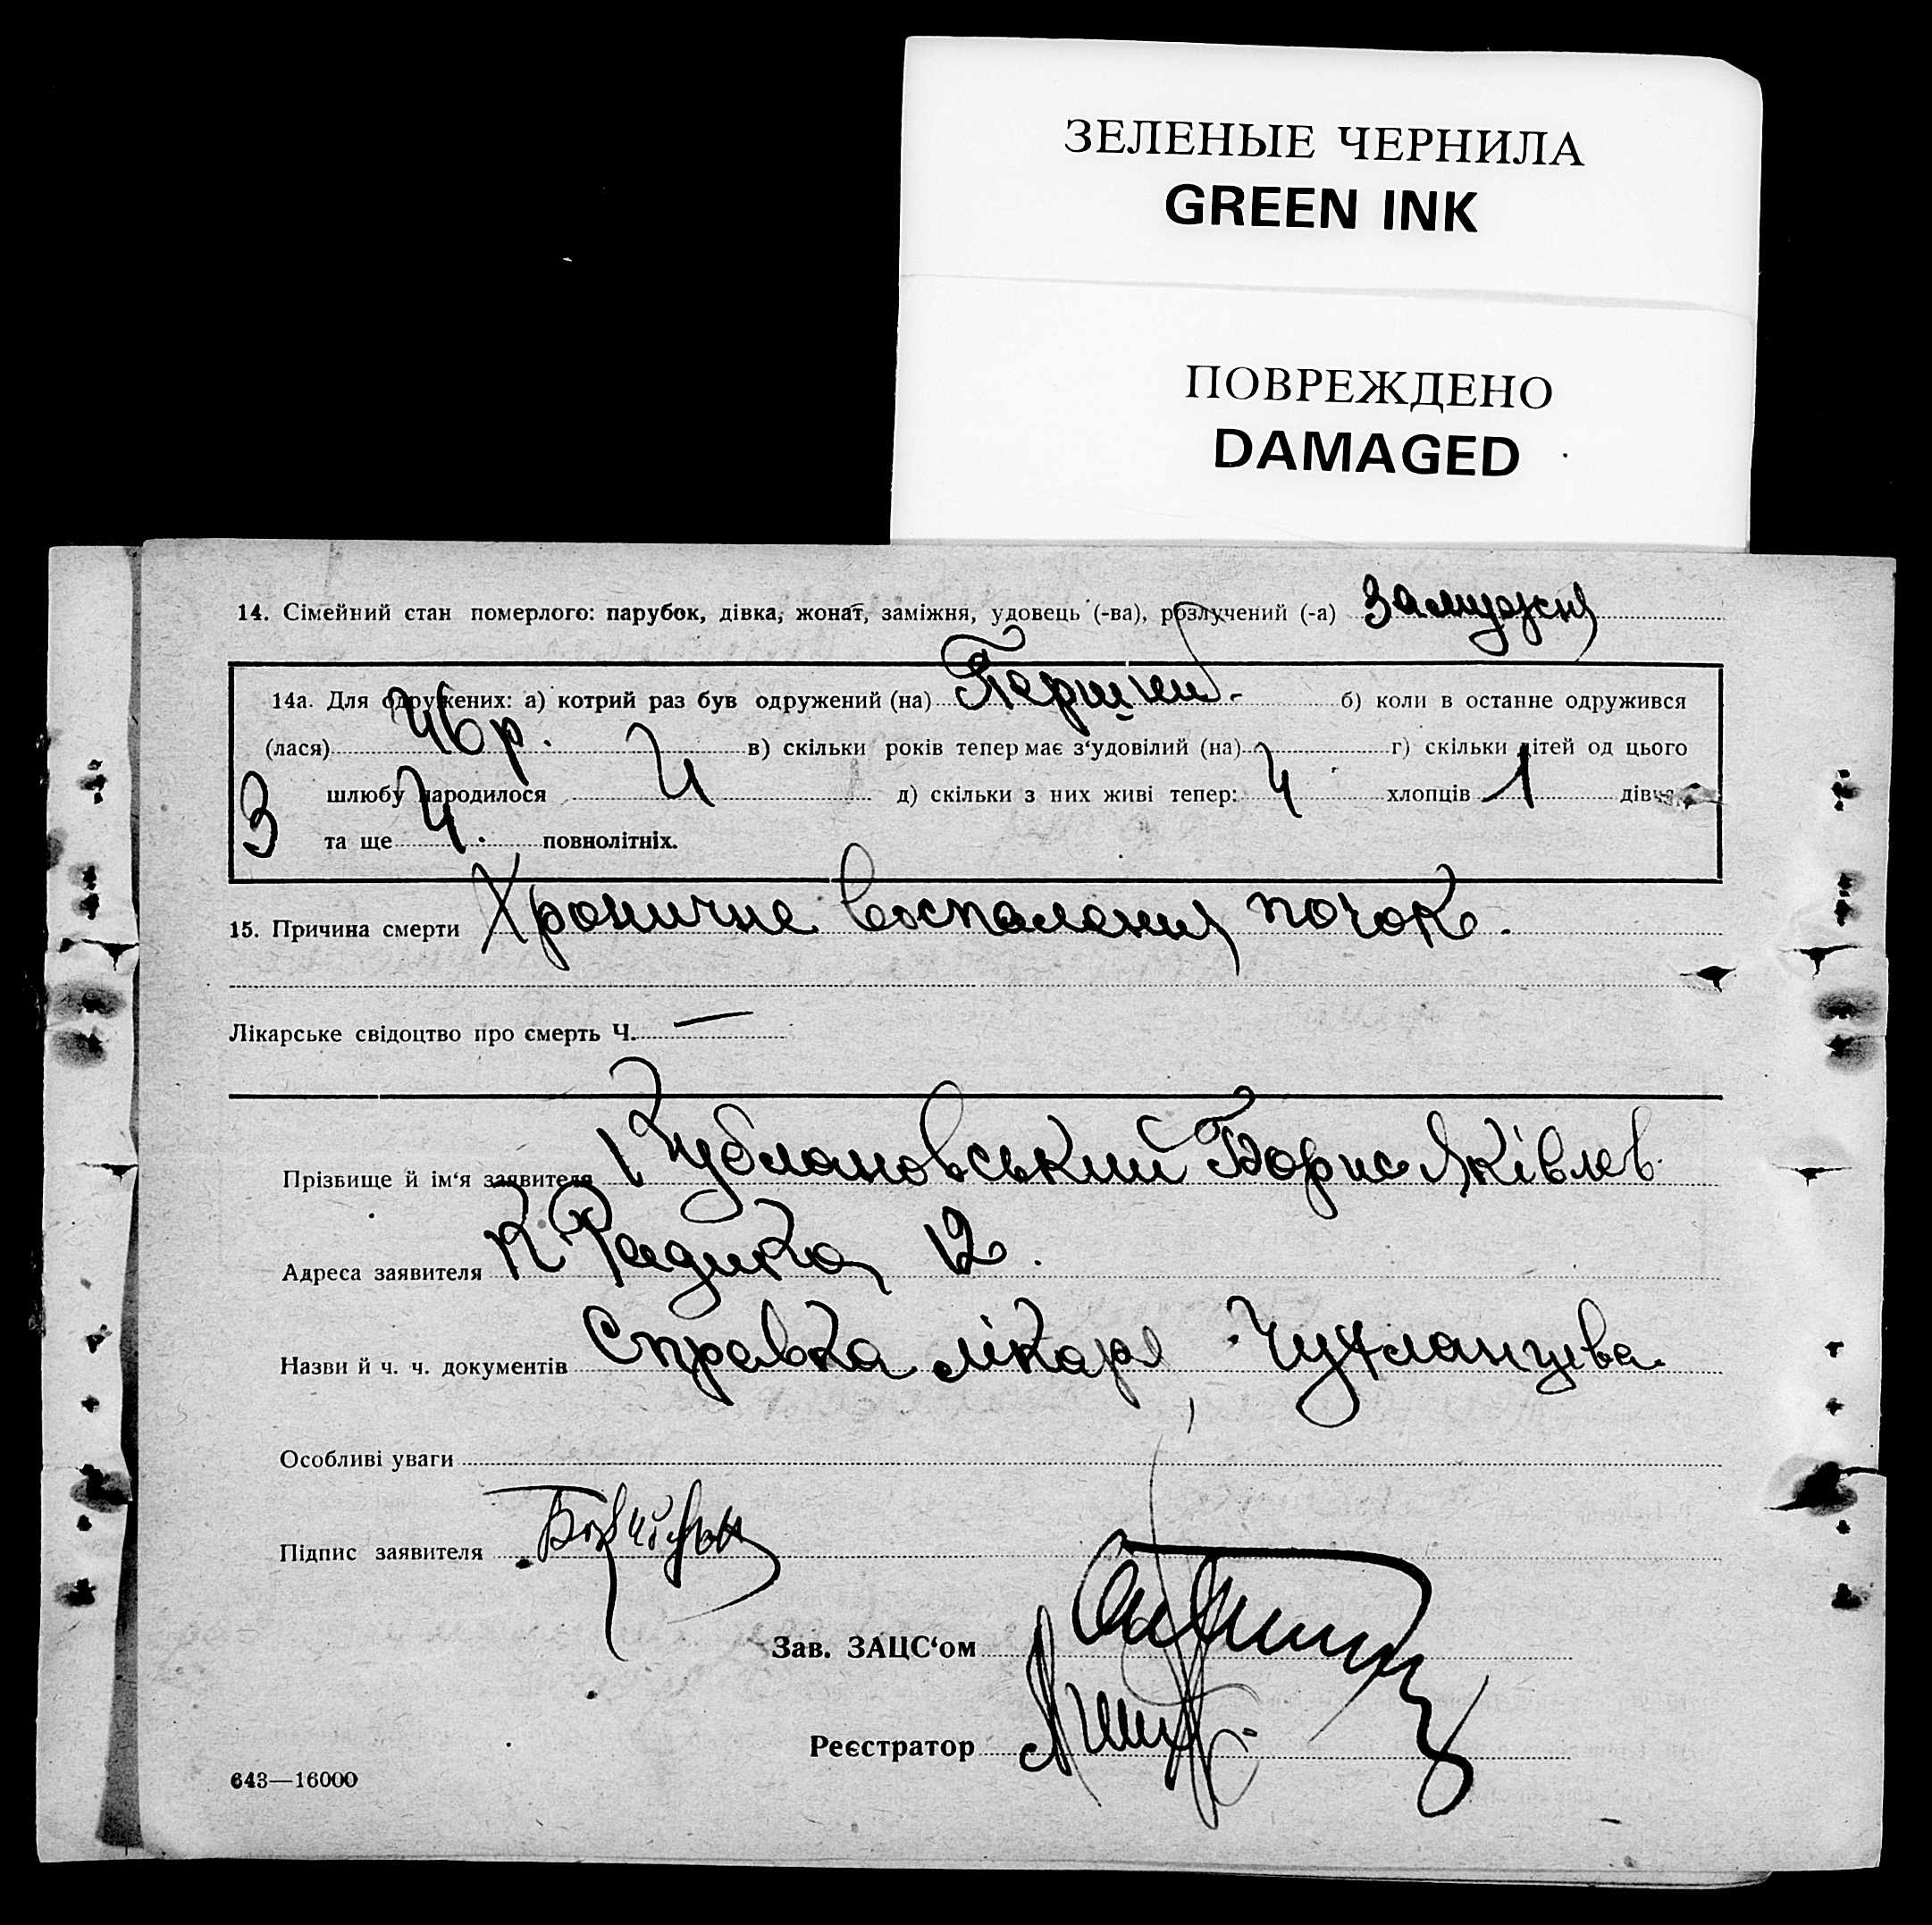 ЗЕЛЕНЫЕ ЧЕРНИЛА
GREEN INK
ПОВРЕЖДЕНО
DAMAGED
14. Сімейний стан померлого: парубок, дівка, жонат, заміжня, удовець (-ва), розлучений (-а) Замужня
14а. Для одружених: а) котрий раз був одружений (на) Перший б) коли в останне одружився
(лася) 46 р. в) скільки років тепер має з‘удовілий (на) г) скільки дітей од цього
шлюбу народилося 4 д) скільки з них живі тепер: 4 хлопців 1 дівч
3 та ще 4. повнолітніх.
15. Причина смерти Хроничне воспаления почок.
Лікарське свідоцтво про смерть Ч. —
Прізвище й ім‘я заявителя Кублановський Борис Яківлев
Адреса заявителя К Радика 12.
Назви й ч. ч. документів Справка лікаря
Особливі уваги
Підпис заявителя
Зав. ЗАЦС‘ом
Реєстратор
643—16000